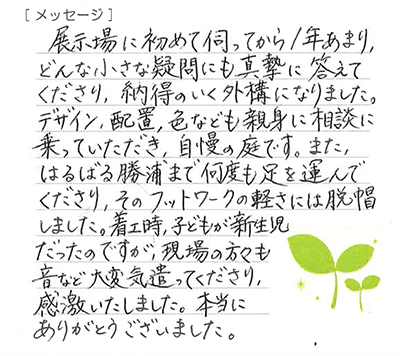 [メッセージ]
展示場に初めて伺ってから1年あまり,
どんな小さな疑問にも真摯に答えて
くださり, 納得のいく外構になりました。
デザイン, 配置, 色なども親身に相談に
乗っていただき, 自慢の庭です。また,
はるばる勝浦まで何度も足を運んで
くださり, そのフットワークの軽さには脱帽
しました。着工時, 子どもが新生児
だったのですが, 現場の方々も
音など大変気遣ってくださり,
感激いたしました。本当に
ありがとうございました。